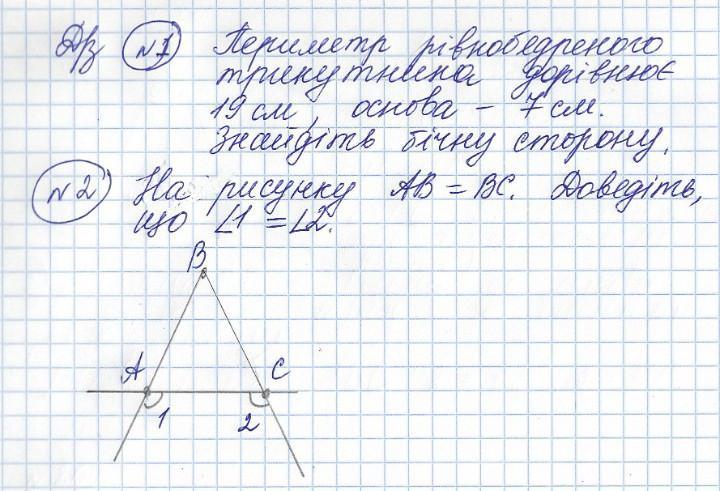 Д/з №1 Периметр рівнобедреного
трикутника дорівнює
19 см, основа – 7 см.
Знайдіть бічну сторону.
№2 На рисунку AB = BC. Доведіть,
що ∠1 = ∠2.
B
A C
1 2